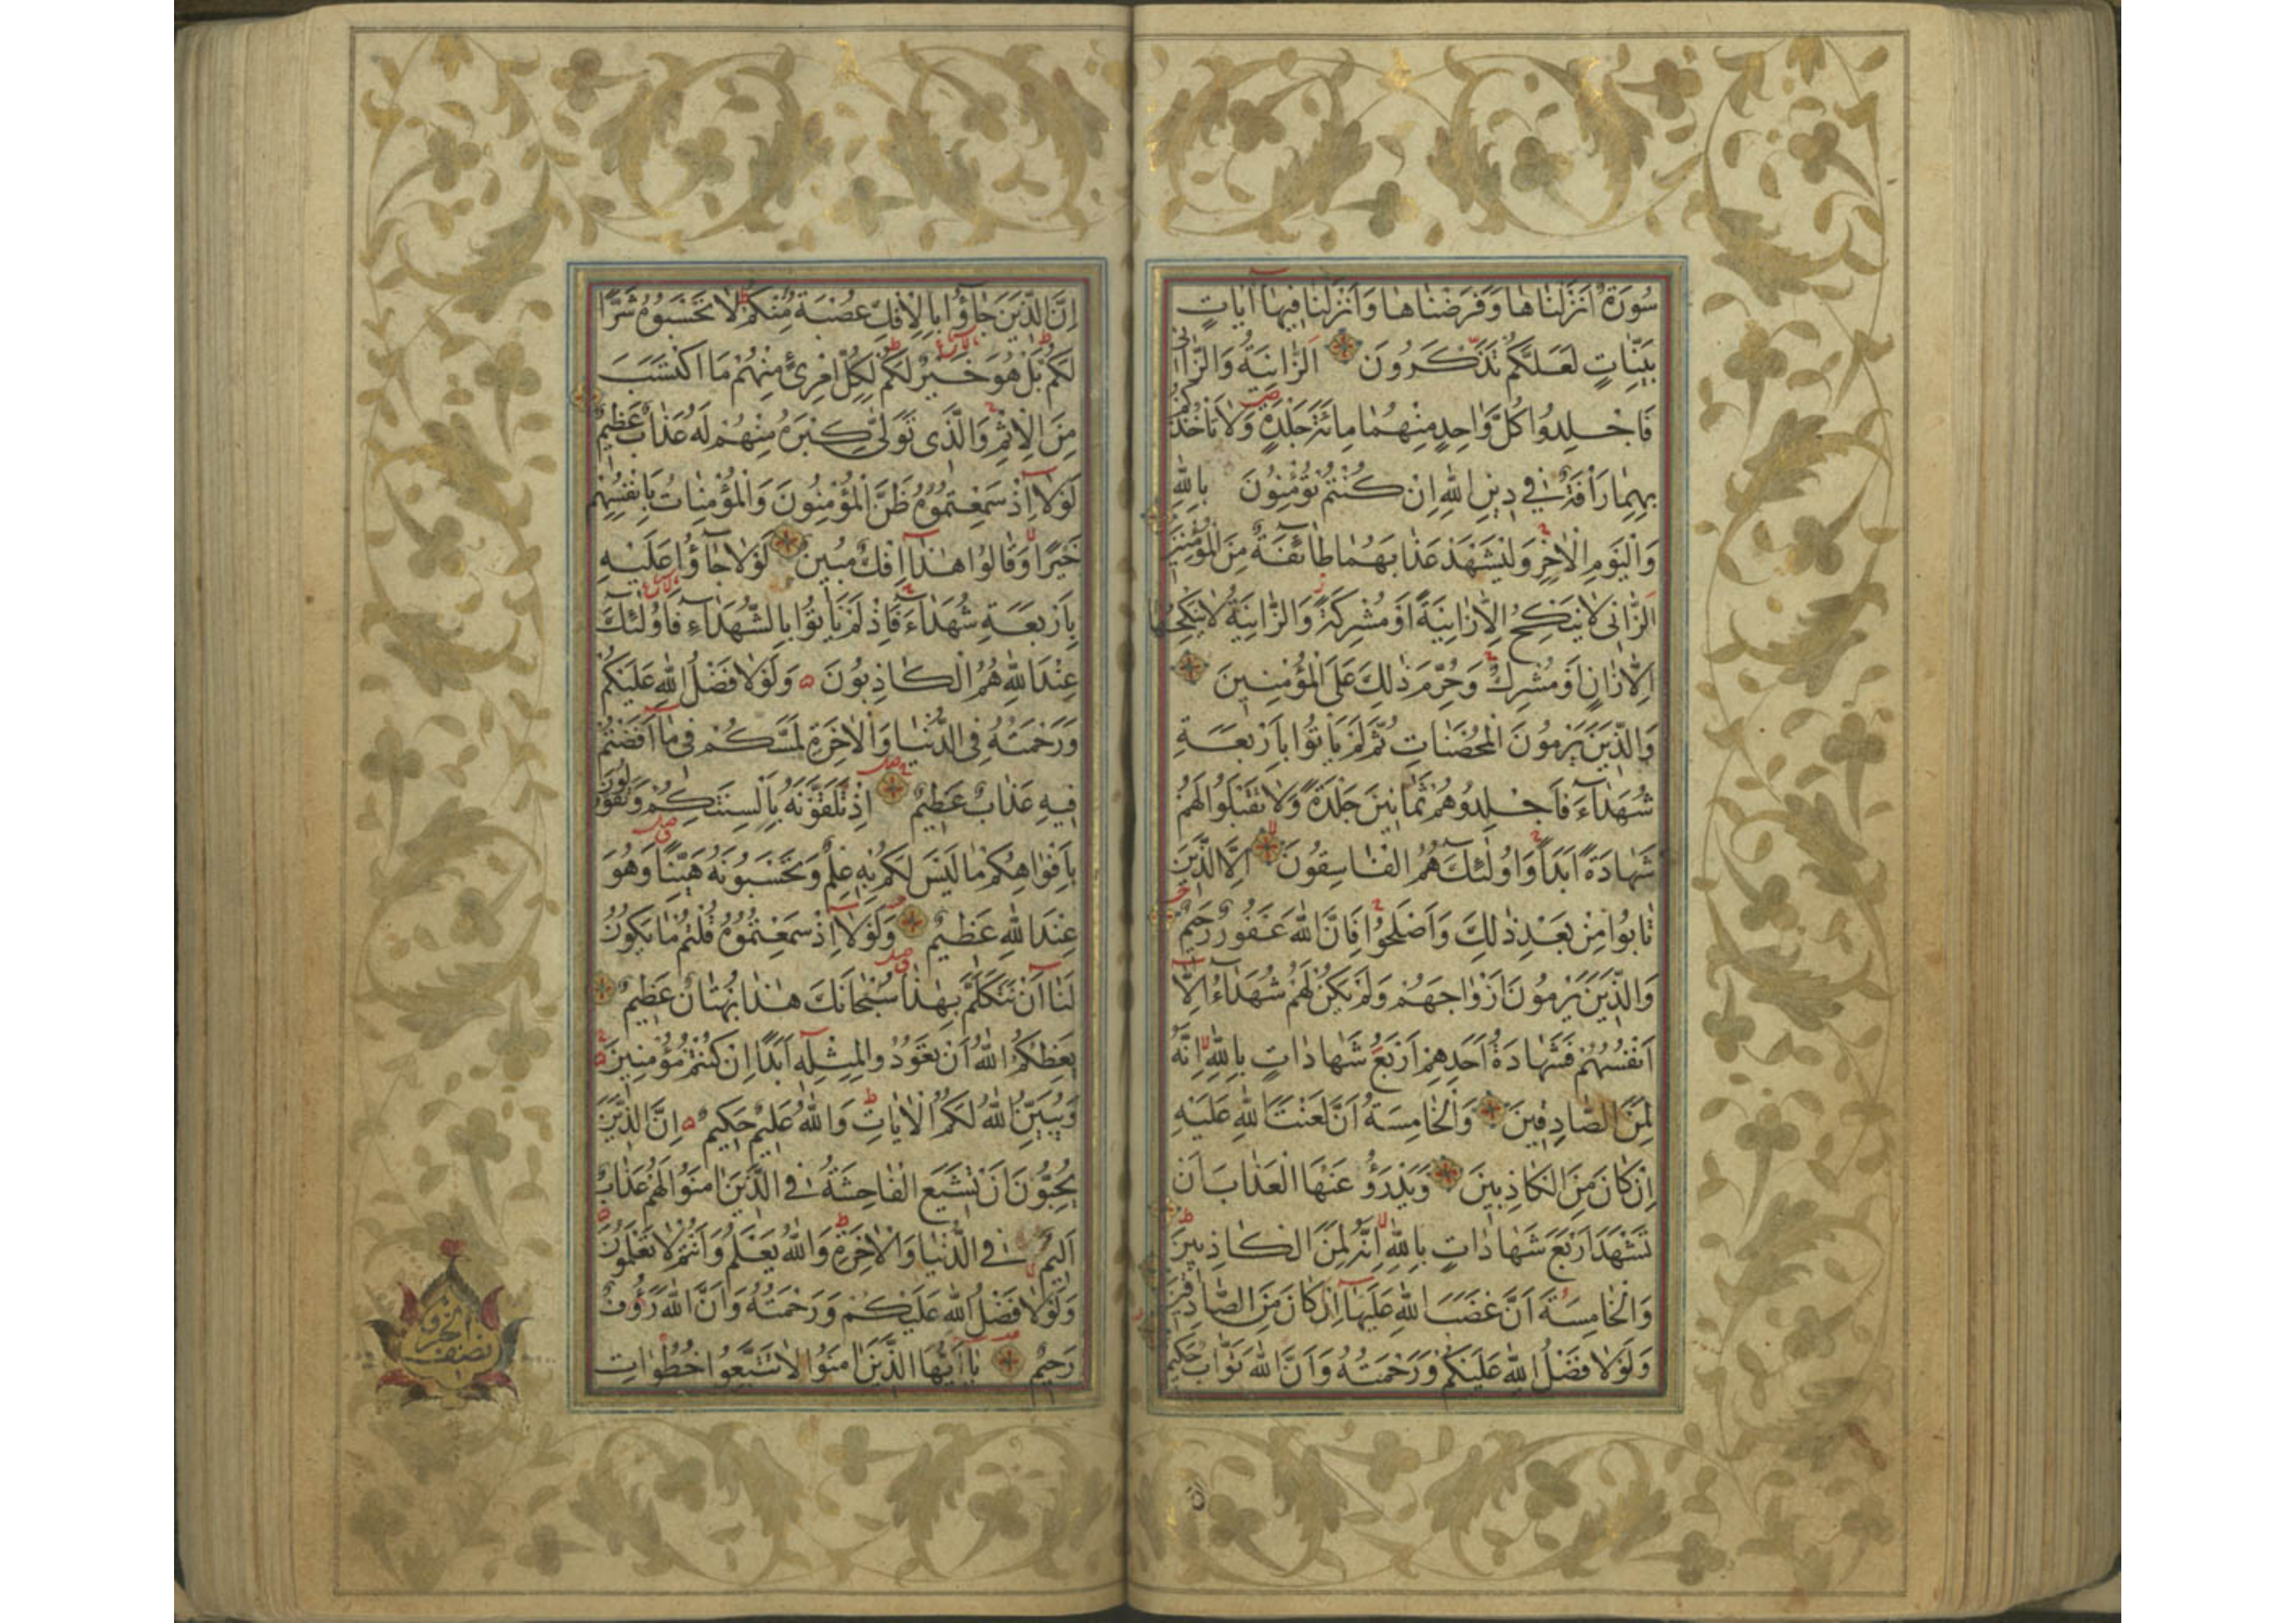 سُورَةٌ اَنْزَلْنَاهَا وَفَرَضْنَاهَا وَاَنْزَلْنَا فِيهَا اٰيَاتٍ
بَيِّنَاتٍ لَعَلَّكُمْ تَذَكَّرُونَ اَلزَّانِيَةُ وَالزَّانِى
فَاجْلِدُوا كُلَّ وَاحِدٍ مِنْهُمَا مِائَةَ جَلْدَةٍ وَلَا تَأْخُذْكُمْ
بِهِمَا رَأْفَةٌ فِى دِينِ اللهِ اِنْ كُنْتُمْ تُؤْمِنُونَ بِاللهِ
وَالْيَوْمِ الْاٰخِرِ وَلْيَشْهَدْ عَذَابَهُمَا طَائِفَةٌ مِنَ الْمُؤْمِنِينَ
اَلزَّانِى لَا يَنْكِحُ اِلَّا زَانِيَةً اَوْ مُشْرِكَةً وَالزَّانِيَةُ لَا يَنْكِحُهَا
اِلَّا زَانٍ اَوْ مُشْرِكٌ وَحُرِّمَ ذٰلِكَ عَلَى الْمُؤْمِنِينَ
وَالَّذِينَ يَرْمُونَ الْمُحْصَنَاتِ ثُمَّ لَمْ يَأْتُوا بِاَرْبَعَةِ
شُهَدَآءَ فَاجْلِدُوهُمْ ثَمَانِينَ جَلْدَةً وَلَا تَقْبَلُوا لَهُمْ
شَهَادَةً اَبَدًا وَاُولٰئِكَ هُمُ الْفَاسِقُونَ اِلَّا الَّذِينَ
تَابُوا مِنْ بَعْدِ ذٰلِكَ وَاَصْلَحُوا فَاِنَّ اللهَ غَفُورٌ رَحِيمٌ
وَالَّذِينَ يَرْمُونَ اَزْوَاجَهُمْ وَلَمْ يَكُنْ لَهُمْ شُهَدَآءُ اِلَّا
اَنْفُسُهُمْ فَشَهَادَةُ اَحَدِهِمْ اَرْبَعُ شَهَادَاتٍ بِاللهِ اِنَّهُ
لَمِنَ الصَّادِقِينَ وَالْخَامِسَةُ اَنَّ لَعْنَتَ اللهِ عَلَيْهِ
اِنْ كَانَ مِنَ الْكَاذِبِينَ وَيَدْرَؤُ عَنْهَا الْعَذَابَ اَنْ
تَشْهَدَ اَرْبَعَ شَهَادَاتٍ بِاللهِ اِنَّهُ لَمِنَ الْكَاذِبِينَ
وَالْخَامِسَةَ اَنَّ غَضَبَ اللهِ عَلَيْهَا اِنْ كَانَ مِنَ الصَّادِقِينَ
وَلَوْلَا فَضْلُ اللهِ عَلَيْكُمْ وَرَحْمَتُهُ وَاَنَّ اللهَ تَوَّابٌ حَكِيمٌ
اِنَّ الَّذِينَ جَاؤُا بِالْاِفْكِ عُصْبَةٌ مِنْكُمْ لَا تَحْسَبُوهُ شَرًّا
لَكُمْ بَلْ هُوَ خَيْرٌ لَكُمْ لِكُلِّ امْرِئٍ مِنْهُمْ مَا اكْتَسَبَ
مِنَ الْاِثْمِ وَالَّذِى تَوَلّٰى كِبْرَهُ مِنْهُمْ لَهُ عَذَابٌ عَظِيمٌ
لَوْلَا اِذْ سَمِعْتُمُوهُ ظَنَّ الْمُؤْمِنُونَ وَالْمُؤْمِنَاتُ بِاَنْفُسِهِمْ
خَيْرًا وَقَالُوا هٰذَا اِفْكٌ مُبِينٌ لَوْلَا جَاؤُا عَلَيْهِ
بِاَرْبَعَةِ شُهَدَآءَ فَاِذْ لَمْ يَأْتُوا بِالشُّهَدَآءِ فَاُولٰئِكَ
عِنْدَ اللهِ هُمُ الْكَاذِبُونَ وَلَوْلَا فَضْلُ اللهِ عَلَيْكُمْ
وَرَحْمَتُهُ فِى الدُّنْيَا وَالْاٰخِرَةِ لَمَسَّكُمْ فِى مَا اَفَضْتُمْ
فِيهِ عَذَابٌ عَظِيمٌ اِذْ تَلَقَّوْنَهُ بِاَلْسِنَتِكُمْ وَتَقُولُونَ
بِاَفْوَاهِكُمْ مَا لَيْسَ لَكُمْ بِهِ عِلْمٌ وَتَحْسَبُونَهُ هَيِّنًا وَهُوَ
عِنْدَ اللهِ عَظِيمٌ وَلَوْلَا اِذْ سَمِعْتُمُوهُ قُلْتُمْ مَا يَكُونُ
لَنَا اَنْ نَتَكَلَّمَ بِهٰذَا سُبْحَانَكَ هٰذَا بُهْتَانٌ عَظِيمٌ
يَعِظُكُمُ اللهُ اَنْ تَعُودُوا لِمِثْلِهِ اَبَدًا اِنْ كُنْتُمْ مُؤْمِنِينَ
وَيُبَيِّنُ اللهُ لَكُمُ الْاٰيَاتِ وَاللهُ عَلِيمٌ حَكِيمٌ اِنَّ الَّذِينَ
يُحِبُّونَ اَنْ تَشِيعَ الْفَاحِشَةُ فِى الَّذِينَ اٰمَنُوا لَهُمْ عَذَابٌ
اَلِيمٌ فِى الدُّنْيَا وَالْاٰخِرَةِ وَاللهُ يَعْلَمُ وَاَنْتُمْ لَا تَعْلَمُونَ
وَلَوْلَا فَضْلُ اللهِ عَلَيْكُمْ وَرَحْمَتُهُ وَاَنَّ اللهَ رَؤُفٌ
رَحِيمٌ يَا اَيُّهَا الَّذِينَ اٰمَنُوا لَا تَتَّبِعُوا خُطُوَاتِ
نصف الحزب